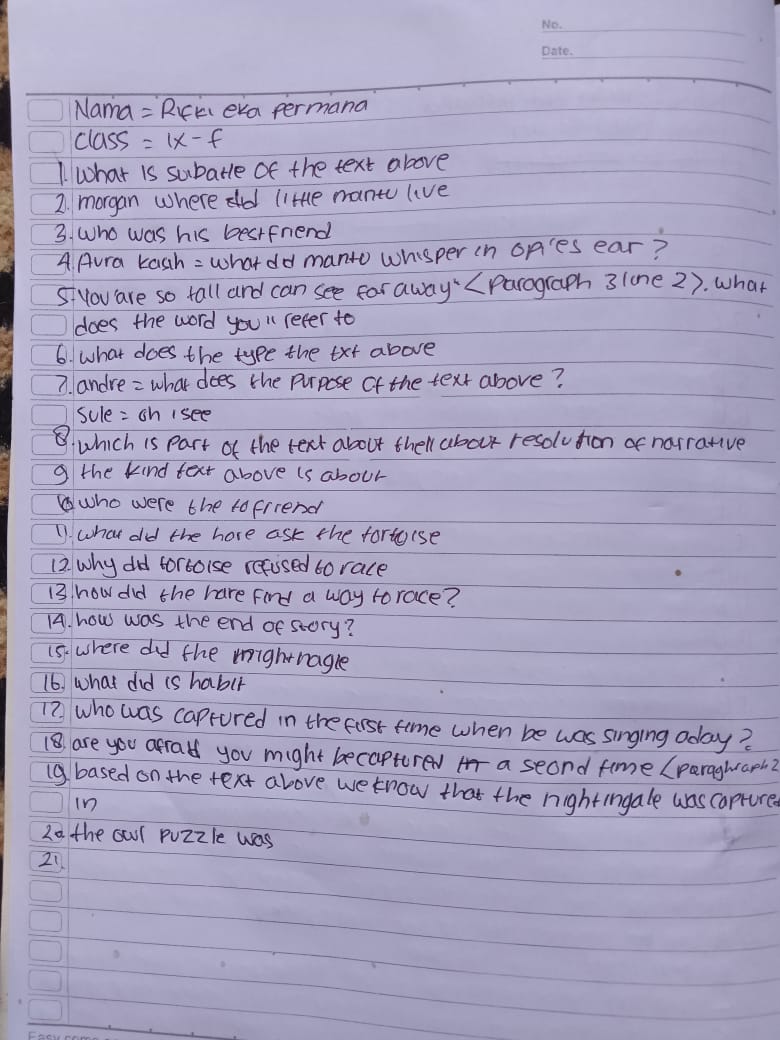 No.
Date.
Nama = Ricki eka permana
class = IX - f
1. What is subatle of the text above
2. morgan where did little mantu live
3. Who was his bestfriend
4. Aura kasih = what dd manto whisper in opi'es ear ?
5. You are so tall and can see far away" <paragraph 3 line 2>. what
does the word you" refer to
6. what does the type the txt above
7. andre = what does the purpose of the text above ?
Sule = oh i see
8. which is part of the text about thell about resolution of narrative
9 the kind text above is about
10 who were the to friend
11. what did the hare ask the tortoise
12. why did tortoise refused to race
13. how did the hare find a way to race?
14. how was the end of story?
15. where did the mightnagle
16. what did is habit
17. who was captured in the first time when be was singing aday ?
18. are you afraid you might becaptured a seond time <paraghraph 2
19. based on the text above we know that the nightingale was capture
in
20 the owl puzzle was
21.